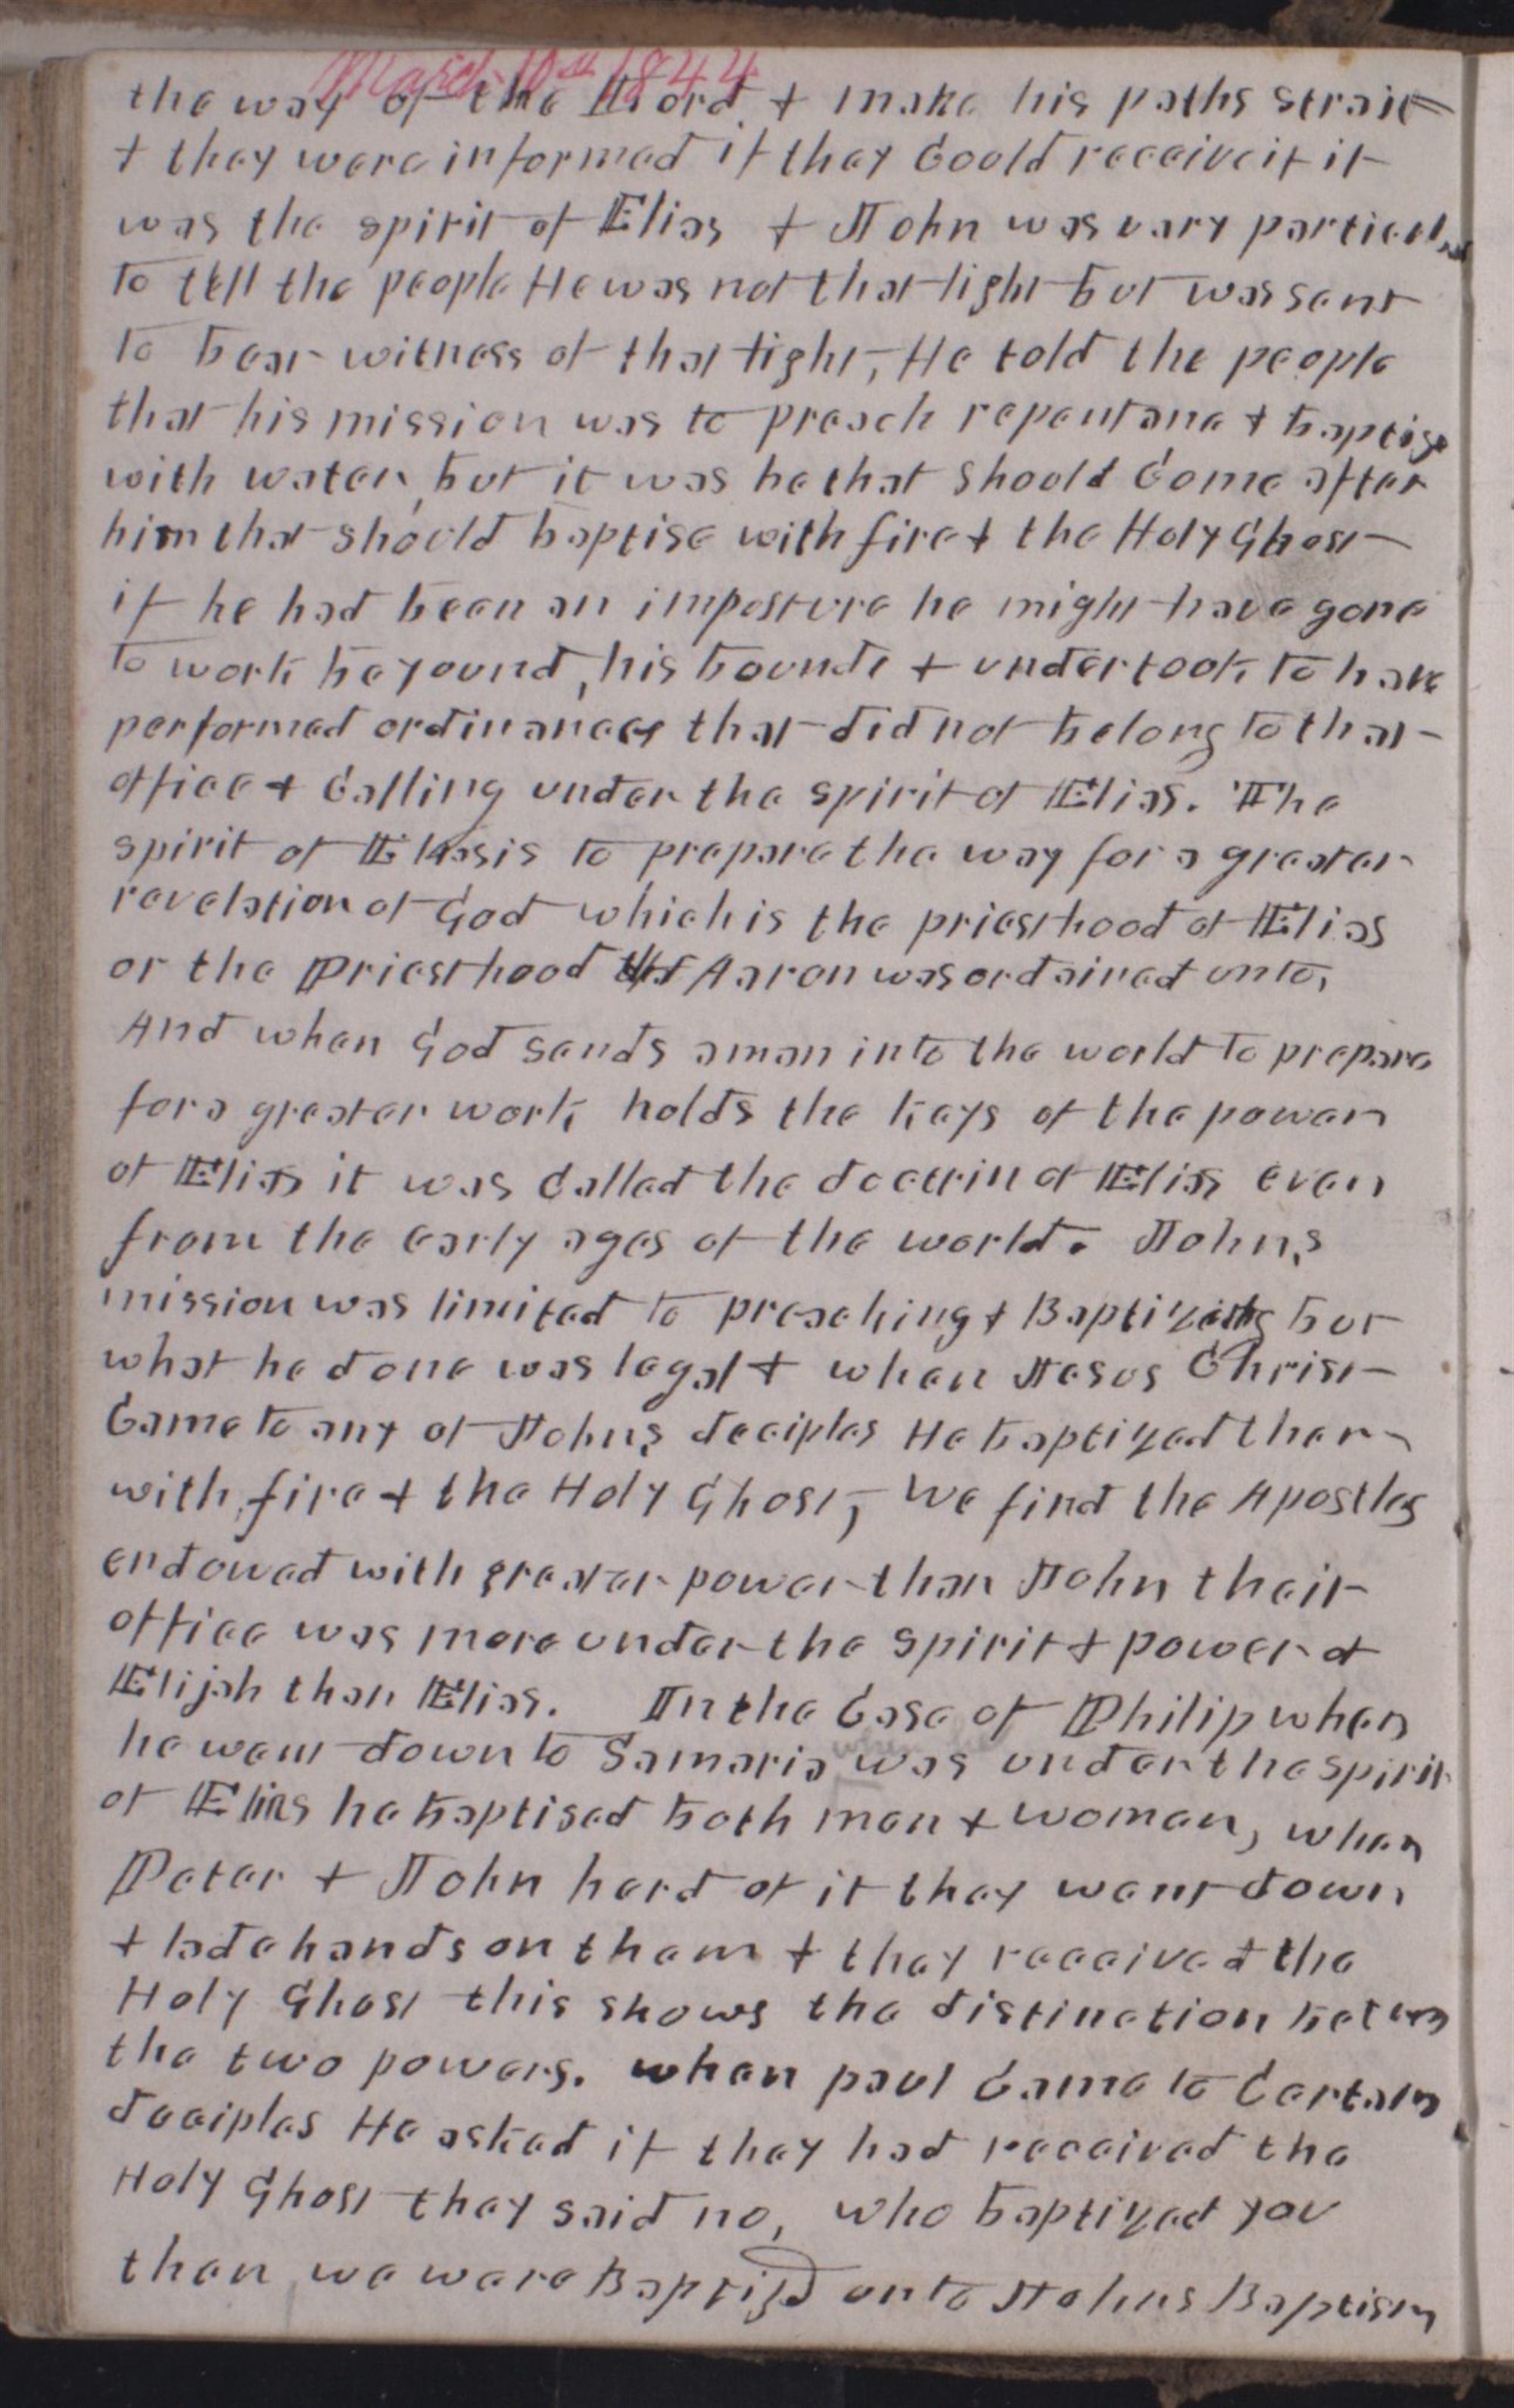 March 10th 1844
the way of the Lord & make his paths strait
& they were informed if they Could receive it it
was the spirit of Elias & John was vary particular
to tell the people He was not that light but was sent
to bear witness of that light, He told the people
that his mission was to preach repentance & baptise
with water, but it was he that should Come after
him that should baptise with fire & the Holy Ghost
if he had been an imposture he might have gone
to work beyound his bounds & undertook to have
performed ordinances that did not belong to that
office & Calling under the spirit of Elias. The
spirit of Elias is to prepare the way for a greater
revelation of God which is the priesthood of Elias
or the Priesthood that Aaron was ordained unto,
And when God sends a man into the world to prepare
for a greater work holds the keys of the power
of Elias it was Called the doctrin of Elias even
from the early ages of the world. Johns
mission was limited to preaching & Baptizing but
what he done was legal & when Jesus Christ
Came to any of Johns deciples He baptized them
with fire & the Holy Ghost, We find the Apostles
endowed with greater power than John their
office was more under the spirit & power of
Elijah than Elias. In the Case of Philip when
he went down to Samaria was under the spirit
of Elias he baptised both men & women, when
Peter & John herd of it they went down
& lade hands on them & they received the
Holy Ghost this shows the distinction between
the two powers. when paul Came to Certain
deciples He asked if they had received the
Holy Ghost they said no, who baptized you
then we were Baptizd unto Johns Baptism